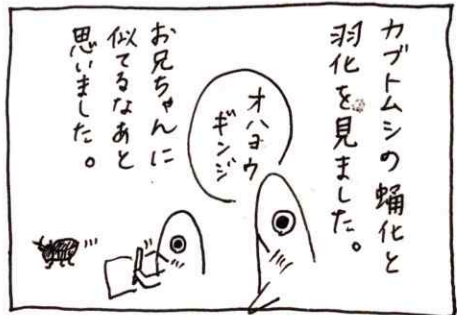 カブトムシの蛹化と
羽化を見ました。
オハヨウ
ギンジ
お兄ちゃんに
似てるなあと
思いました。